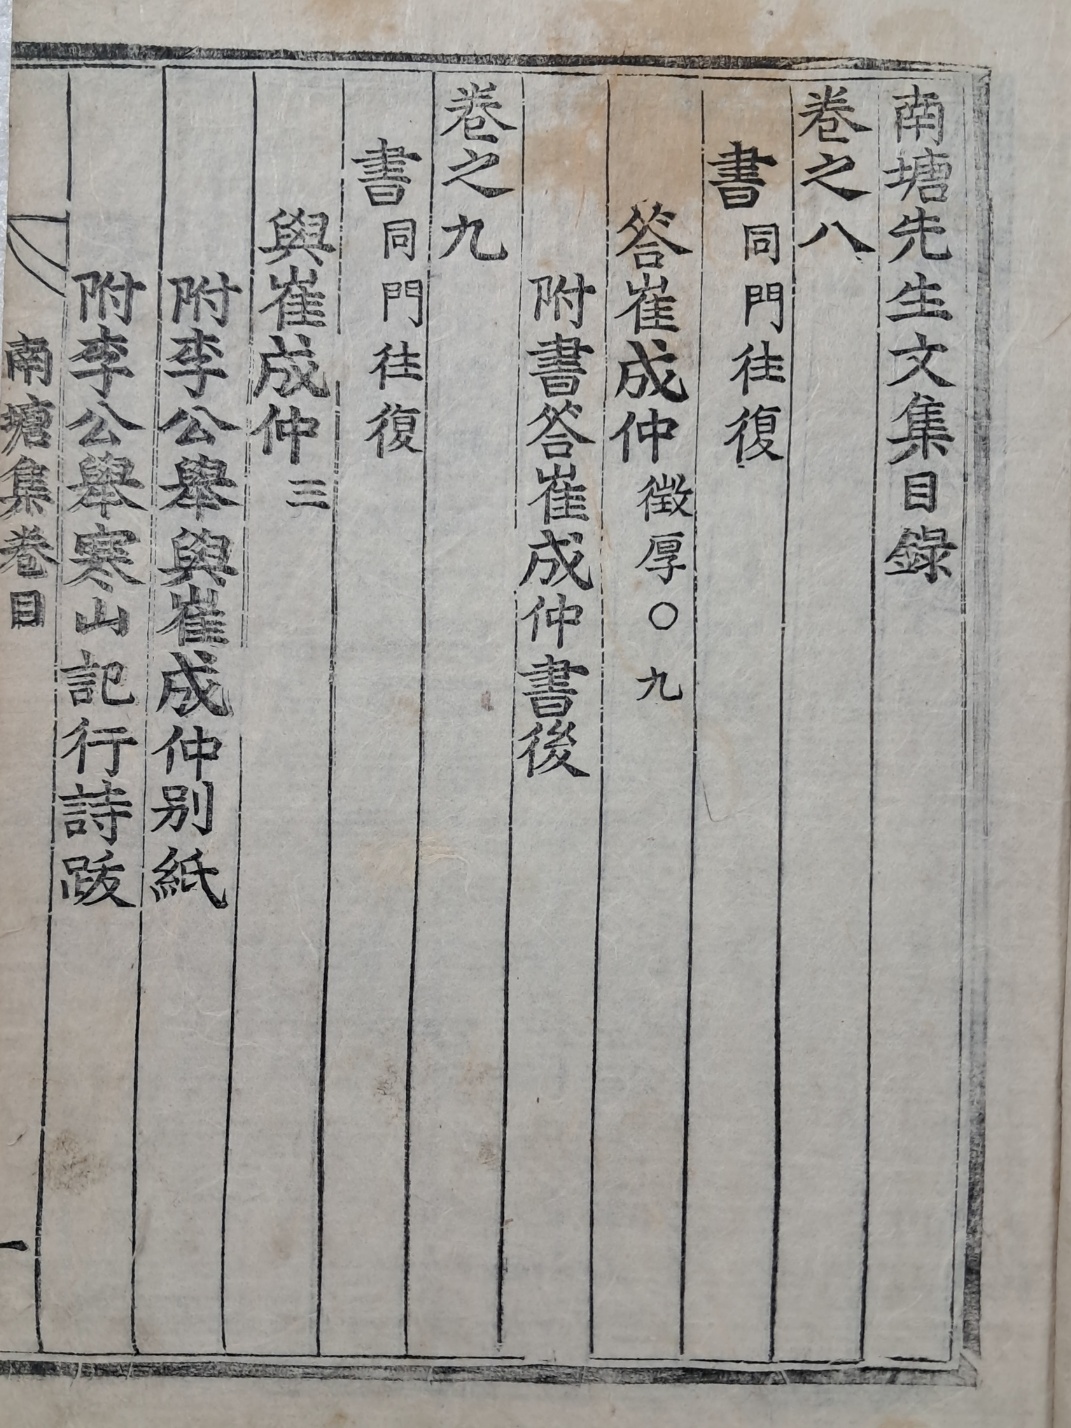 南塘先生文集目錄
卷之八
書同門往復
答崔成仲徵厚○九
附書答崔成仲書後
卷之九
書同門往復
與崔成仲三
附李公舉與崔成仲別紙
附李公舉寒山記行詩跋
南塘集卷目 一